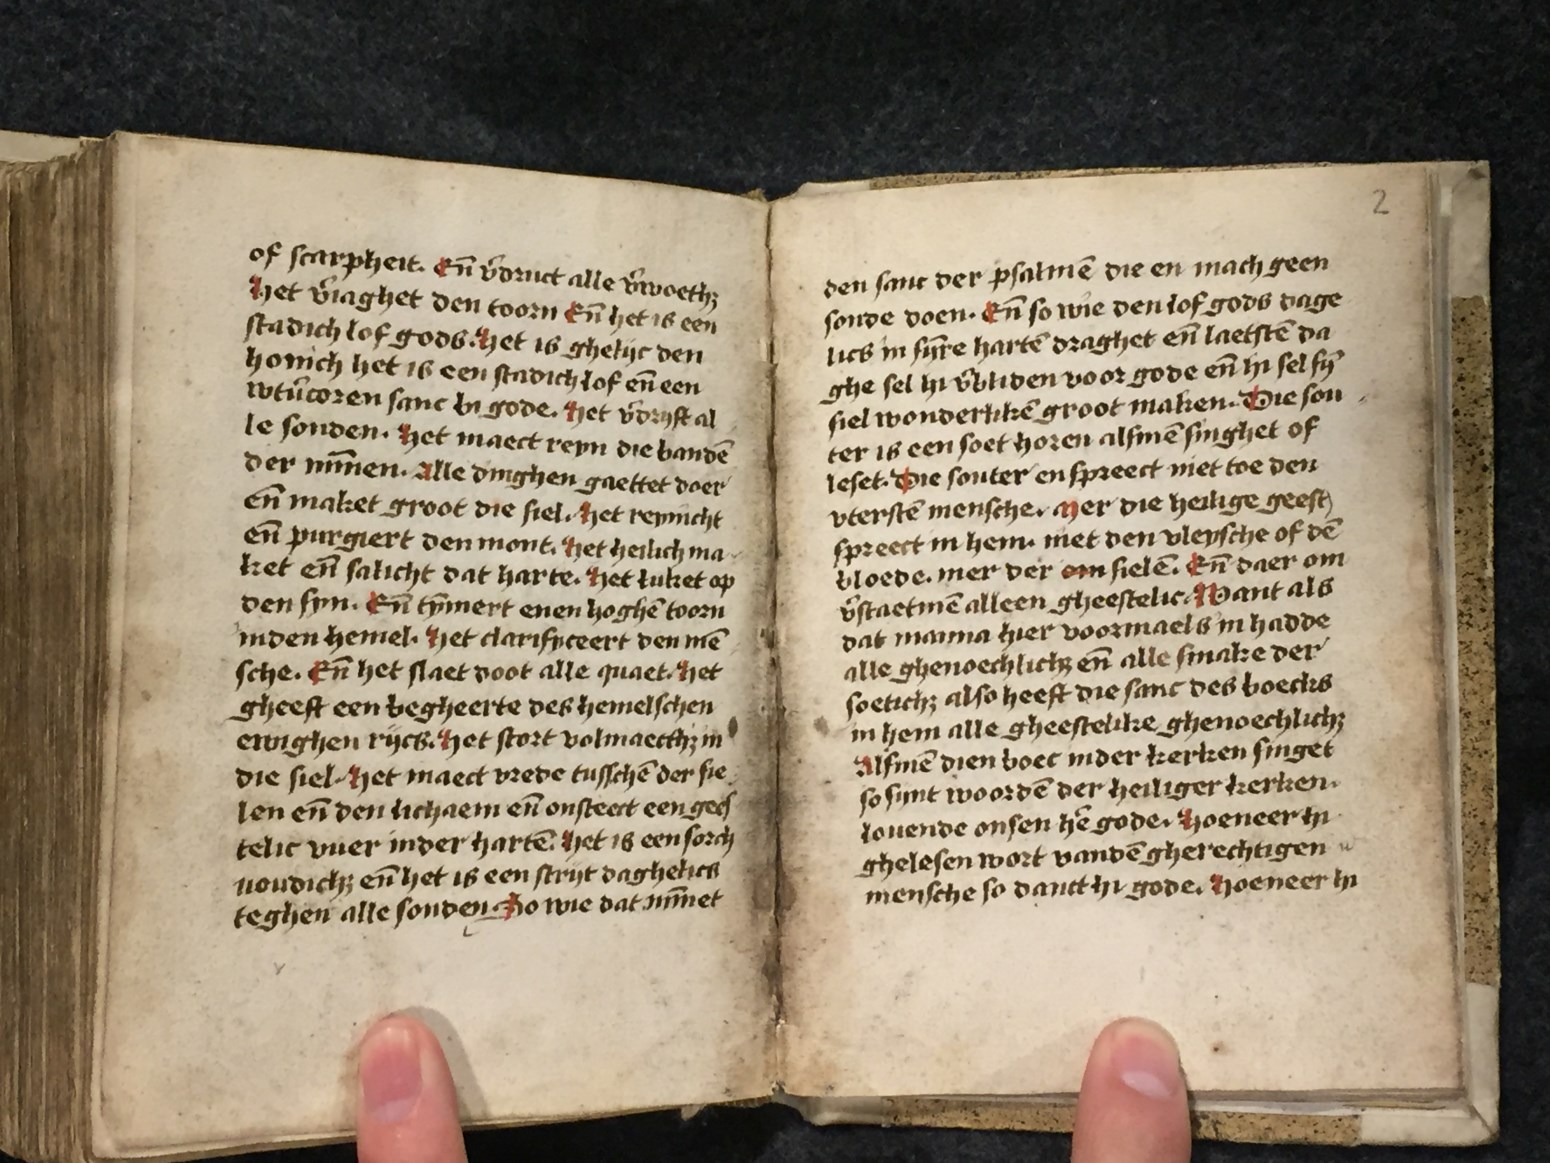 of scarpheit. En̄ v̄druct alle v̄woethꝫ
Het v̄iaghet den toorn En̄ het is een
stadich lof gods. Het is ghelijc den
honich het is een stadich lof en̄ een
wtūcoren sanc bi gode. Het v̄drijft al
le sonden. Het maect reyn die bandē
der mīnen. Alle dinghen gaettet doer
en̄ maket groot die siel. Het reynicht
en̄ purgiert den mont. Het heilich ma
ket en̄ salicht dat harte. Het luket op
den syn. En̄ tȳmert enen hoghē toorn
inden hemel. Het clarifyceert den mē
sche. En̄ het slaet doot alle quaet. Het
gheeft een begheerte des hemelschen
ewighen rijcs. Het stort volmaecthꝫ in
die siel. Het maect vrede tusschē der sie
len en̄ den lichaem en̄ onsteect een gees
telic vuer inder hartē. Het is een sorch
uoudichꝫ en̄ het is een strijt daghelics
teghen alle sonden. So wie dat mīnet
2
den sanc der psalmē die en mach geen
sonde doen. En̄ so wie den lof gods dage
lics in sȳre hartē draghet en̄ laetstē da
ghe sel hi v̄bliden voor gode en̄ hi sel sȳ
siel wonderlikē groot maken. Die sou
ter is een soet horen alsmē singhet of
leset. Die souter en spreect niet toe den
vterstē mensche. Mer die heilige geest
spreect in hem. niet den vleysche of dē
bloede. mer der om sielē. En̄ daer om
v̄staetmē alleen gheestelic. Want als
dat manna hier voormaels in hadde
alle ghenoechlichꝫ en̄ alle smake der
soetichꝫ also heeft die sanc des boecks
in hem alle gheestelike ghenoechlichꝫ
Alsmē dien boec inder kerken singet
so sijnt woordē der heiliger kerken.
louende onsen hē gode. Hoeneer hi
ghelesen wort vandē gherechtigen
mensche so danct hi gode. Hoeneer hi